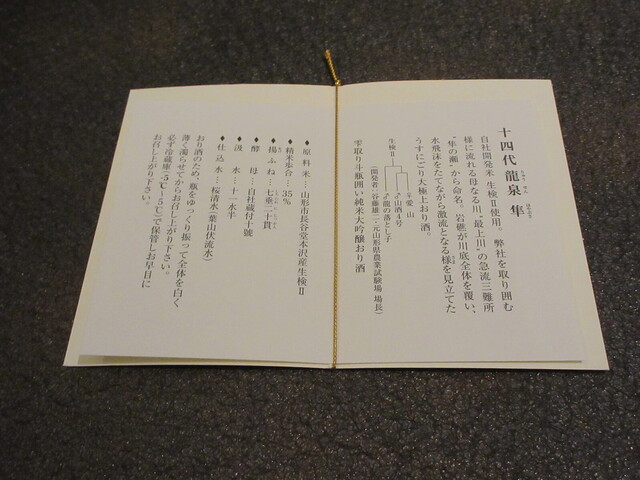 十四代龍泉 隼
りゅう せん はやぶさ
自社開発米 生検Ⅱ使用。弊社を取り囲む
様に流れる母なる川〝最上川〟の急流三難所
〝隼の瀬〟から命名。岩礁が川底全体を覆い、
水飛沫をたてながら激流となる様を見立てた
うすにごり大極上おり酒。
生検Ⅱ
♀愛山
山酒4号
龍の落とし子
(開発者:谷藤雄二:元山形県農業試験場 場長)
雫取り斗瓶囲い純米大吟醸おり酒
◆原料米…山形市長谷堂本沢産生検Ⅱ
◆精米歩合…35%
◆揚ふね…七垂二十貫
◆酵母…自社蔵付十號
◆汲水…十一水半
◆仕込水…桜清水(葉山伏流水)
おり酒のため、瓶をゆっくり振って全体を白く
薄く濁らせてからお召し上がり下さい。
必ず冷蔵庫(-5℃~5℃)で保管しお早目に
お召し上がり下さい。